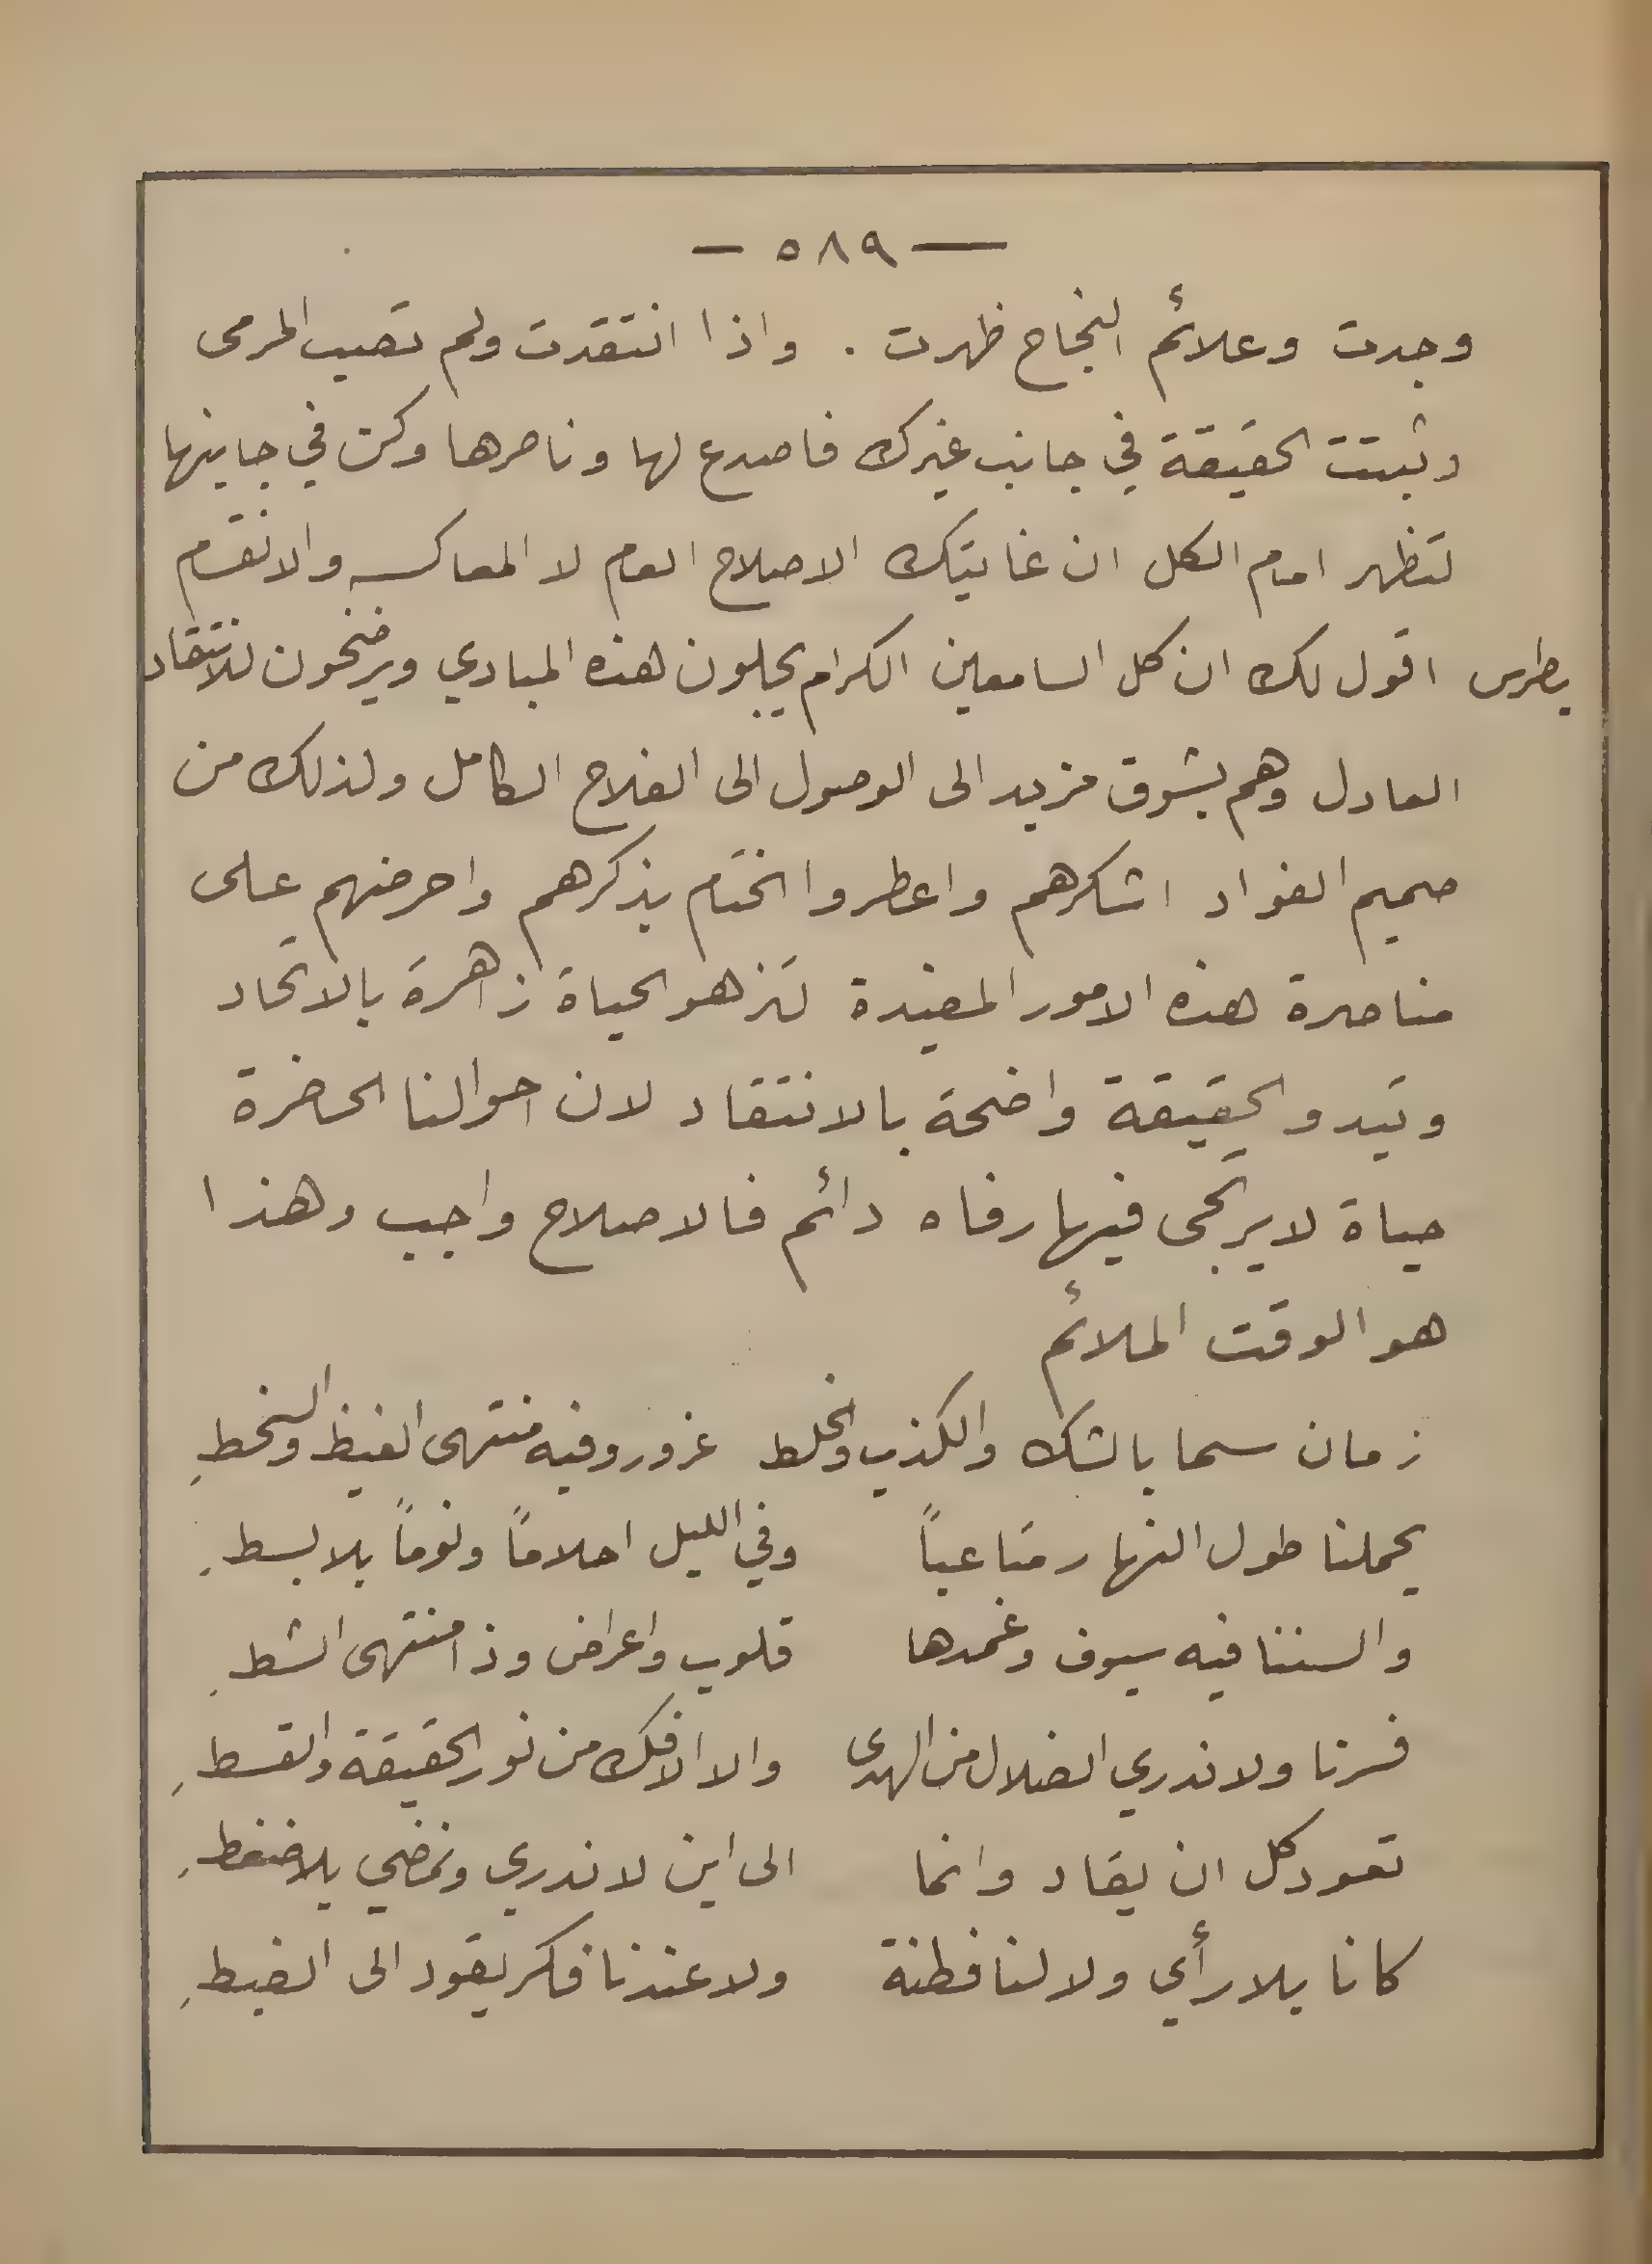 — ٥٨٩ —
وجدت وعلائم النجاح ظهرت . واذا انتقدت ولم تصيب المرمى
وثبتت الحقيقة في جانب غيرك فاصدع لها وناصرها وكن في جانبها
لتظهر امام الكل ان غايتك الاصلاح العام لا المعاكسه والانقسام
بطرس اقول لك ان كل السامعين الكرام يجلون هذه المبادي ويرضخون للانتقاد
العادل وهم بشوق مزيد الى الوصول الى الفلاح الكامل ولذلك من
صميم الفواد اشكرهم واعطروا الختام بذكرهم واحرضهم على
مناصرة هذه الامور المفيدة لتزهو الحياة زاهرة بالاتحاد
وتبدو الحقيقة واضحة بالانتقاد لان احوالنا الحاضرة
حياة لا يرتجى فيها رفاه دائم فالاصلاح واجب وهذا
هو الوقت الملائم
زمان سما بالشك والكذب والخلط غرور وفيه منتهى الغيظ والسخطِ
يحملنا طول النهار متاعباً وفي الليل احلاماً ونوماً بلا بسطِ
والسننا فيه سيوف وغمدها قلوب واعراض وذا منتهى الشطِ
فسرنا ولا ندري الضلال من الهدى والا الافك من نور الحقيقة والقسطِ
تعود كل ان يقاد وانما الى اين لا ندري ونمضي بلا ضغطِ
كانا بلا رأي ولا لنا فطنة ولا عندنا فكر يقود الى الضبطِ